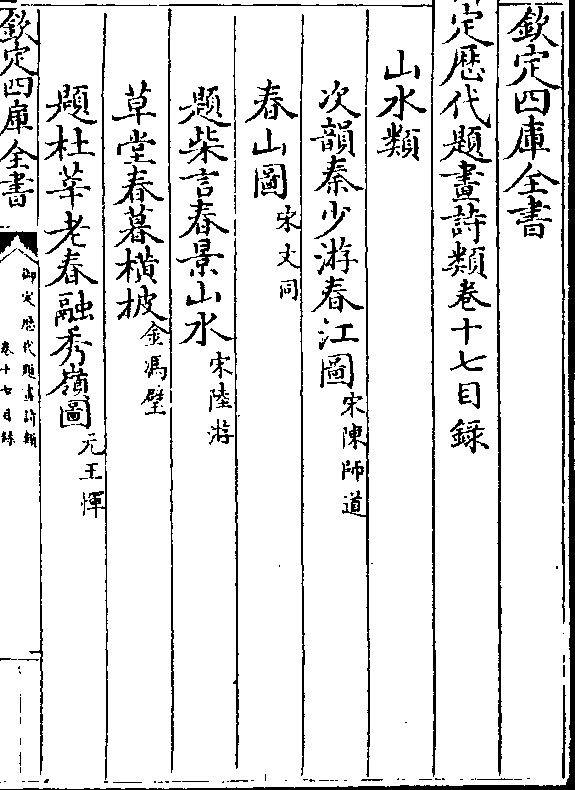 欽定四庫全書
定歴代題畫詩類卷十七目録
山水類
次韻秦少游春江圖宋陳師道
春山圖宋文同
題柴言春景山水宋陸游
草堂春暮横披金馮璧
題杜莘老春融秀嶺圖元王惲
欽定四庫全書
御定歴代題畫詩類
卷十七目録